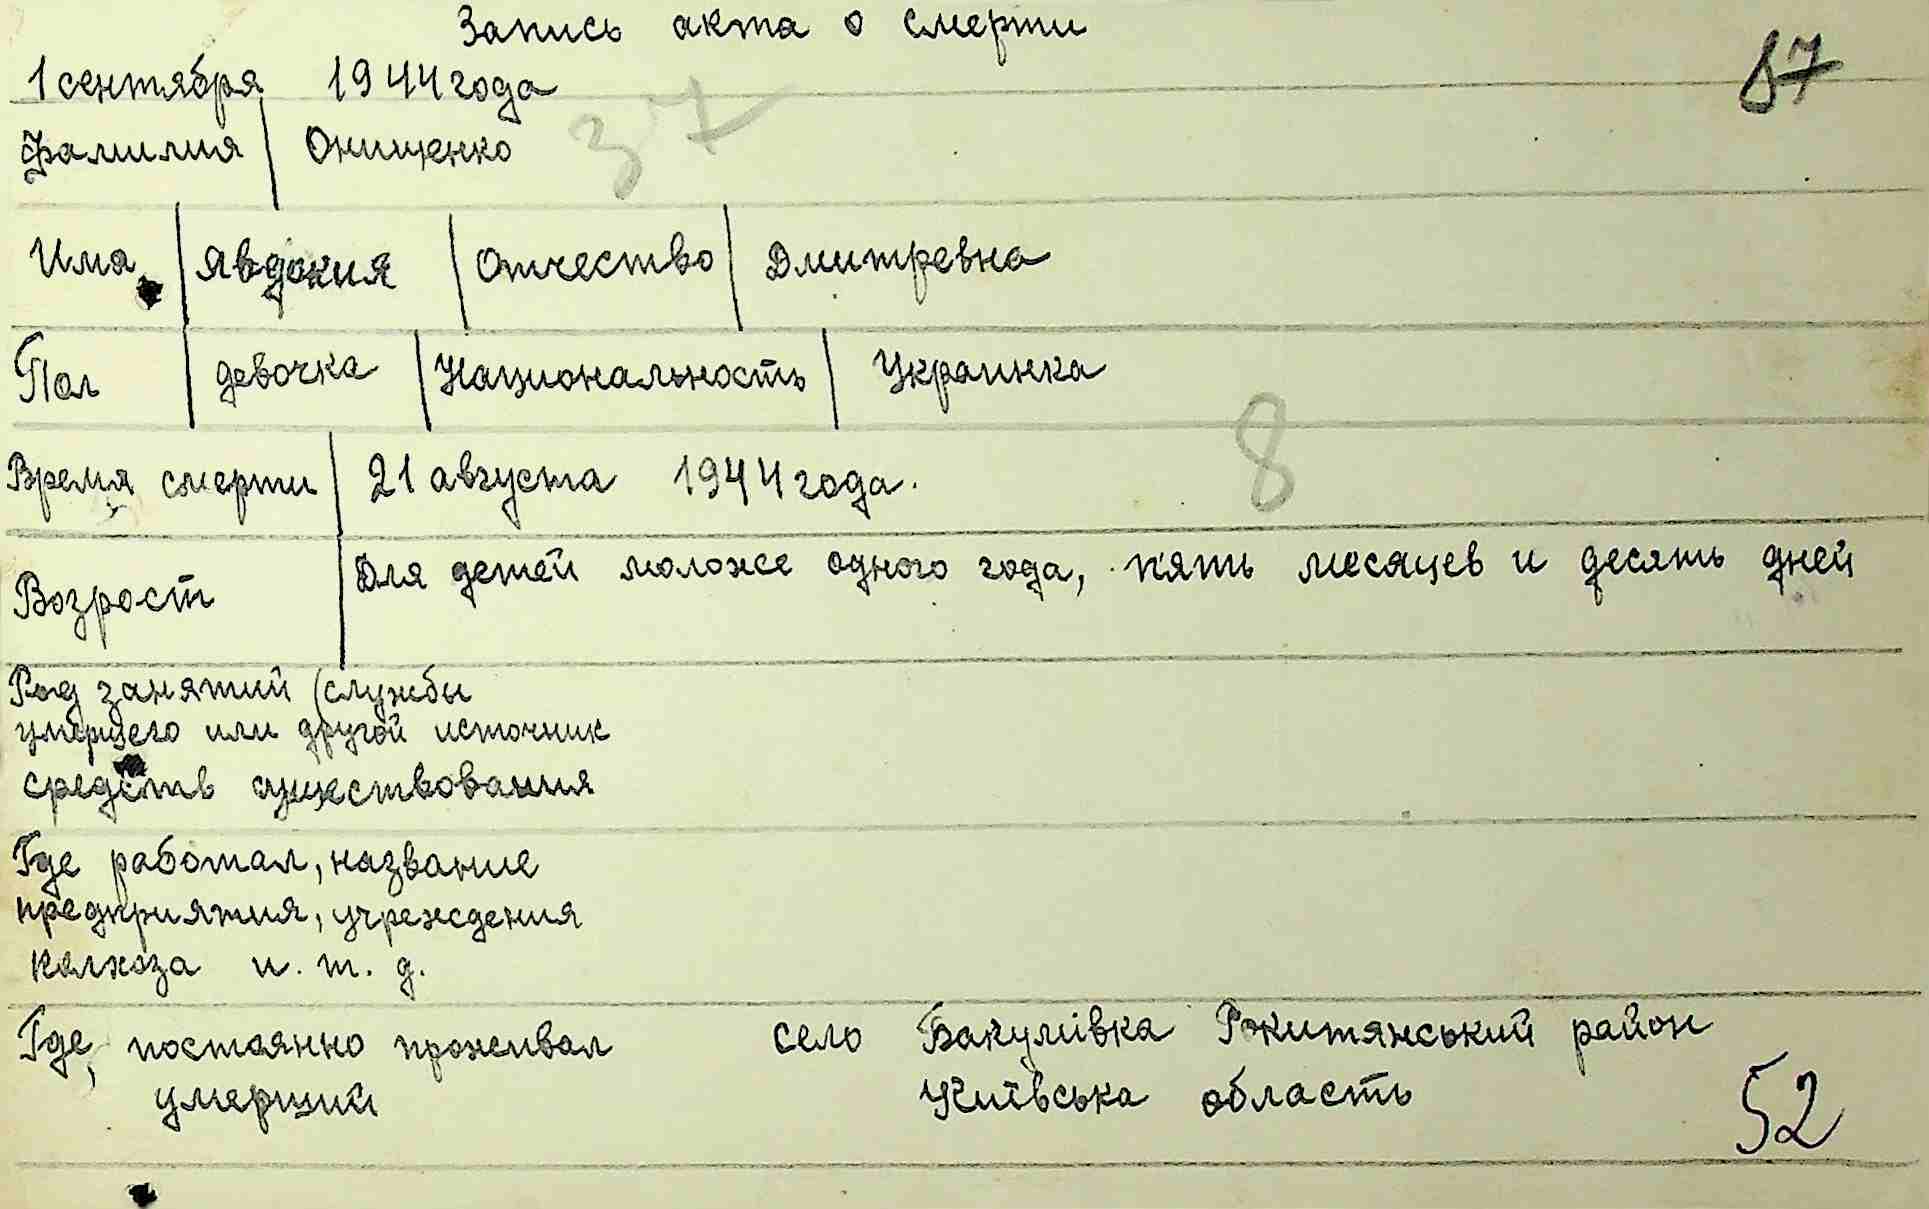 Запись акта о смерти
87
1 сентября 1944 года
37
Фамилия Онищенко
Имя Явдокия Отчество Дмитревна
Пол девочка Национальность Украинка
8
Время смерти 21 августа 1944 года.
Возрост Для детей моложе одного года, пять месяцев и десять дней
Род занятий (службы
умершего или другой источник
средств существования
Где работал, название
предприятия, учреждения
колхоза и. т. д.
Где, постоянно проживал село Бакумівка Рокитянський район
умерший Київська область
52